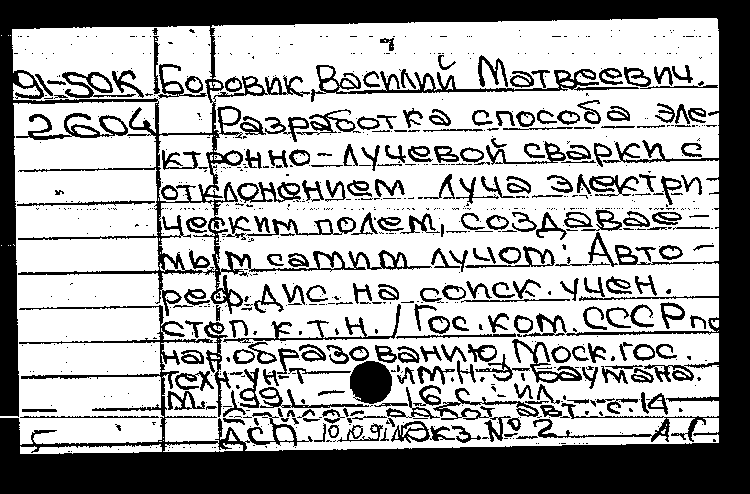 91-50К Боровик, Василий Матвеевич.
2604 Разработка способа эле-
ктронно-лучевой сварки с
отклонением луча электри-
ческим полем, создавае-
мым самим лучом: Авто-
реф. дис. на соиск. учен.
степ. к.т.н. / Гос. ком. СССР по
нар. образованию, Моск. гос.
техн. ун-т им. Н.Э. Баумана.
М. 1991. - 16 с.: ил.
Список работ авт.: с. 14.
ДСП. 10.10.91 Экз. № 2. А-Г.